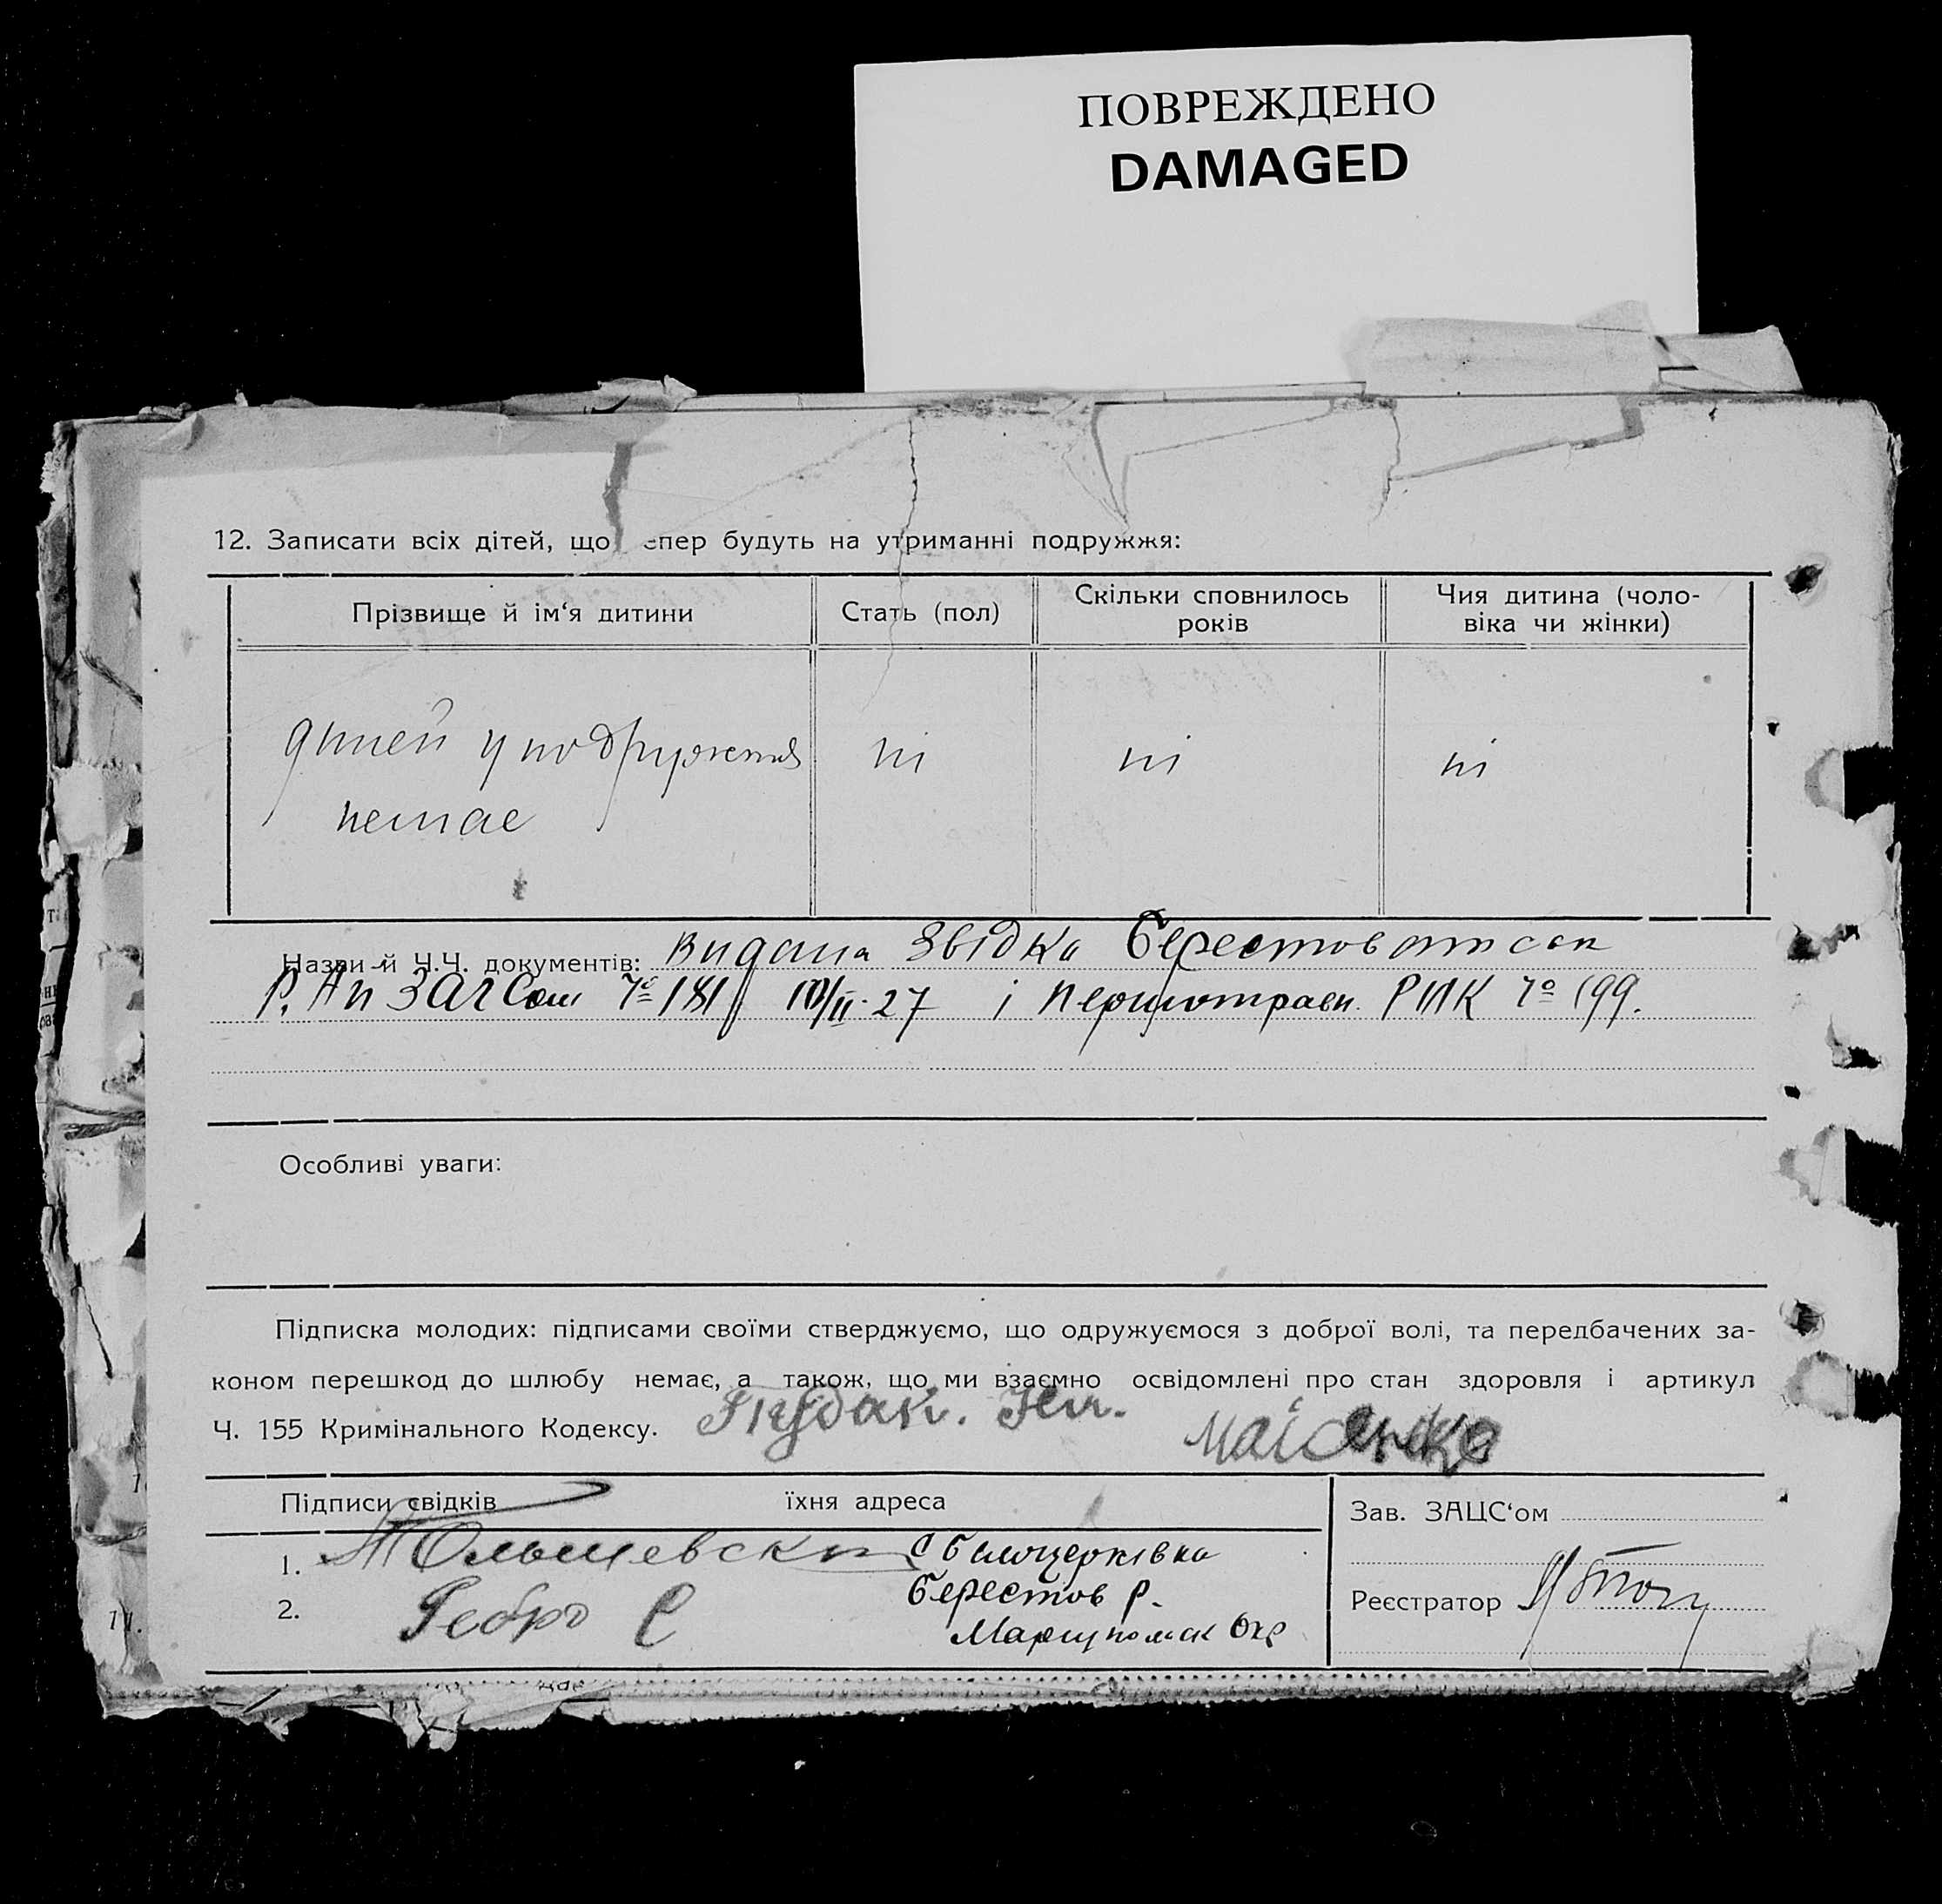 ПОВРЕЖДЕНО
DAMAGED
12. Записати всіх дітей, що епер будуть на утриманні подружжя:
Прізвище й ім‘я дитини
Стать (пол)
Скільки сповнилось років
Чия дитина (чоло-
віка чи жінки)
дітей у подружжя ні ні ні
немае
Назви й Ч.Ч. документів: видана Звідка Берестов
Р. ЗАГСом 181 10/II-27 і Першотравн. РИК 199.
Особливі уваги:
Підписка молодих: підписами своїми стверджуємо, що одружуємося з доброї волі, та передбачених за-
коном перешкод до шлюбу немає, а також, що ми взаємно освідомлені про стан здоровля і артикул
Ч. 155 Кримінального Кодексу.
Підписи свідків їхня адреса
Зав. ЗАЦС‘ом
1. Ольшевски с Билоцерківка
2. Ребро С Берестов р.
Мариупольск Окр
Реєстратор